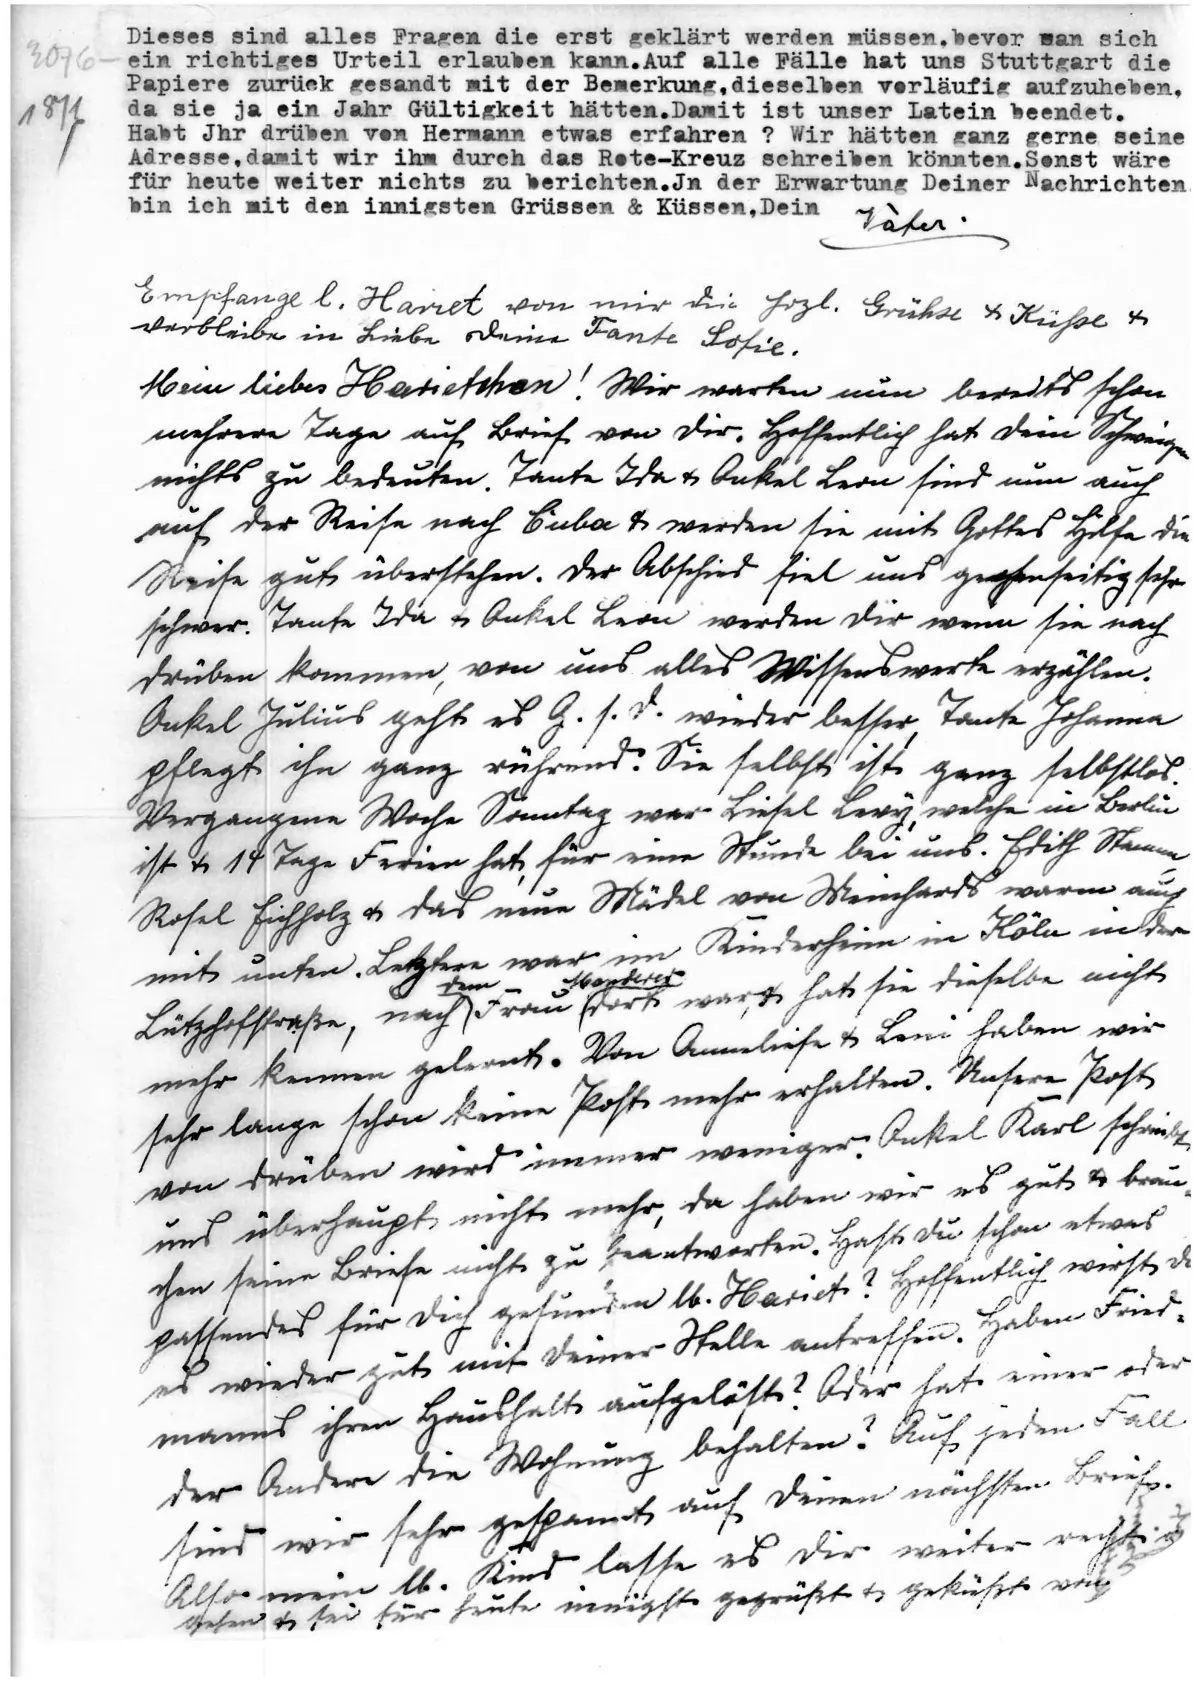 3076-
18/1
Dieses sind alles Fragen die erst geklärt werden müssen.bevor man sich
ein richtiges Urteil erlauben kann.Auf alle Fälle hat uns Stuttgart die
Papiere zurück gesandt mit der Bemerkung,dieselben vorläufig aufzuheben,
da sie ja ein Jahr Gültigkeit hätten.Damit ist unser Latein beendet.
Habt Jhr drüben von Hermann etwas erfahren ? Wir hätten ganz gerne seine
Adresse,damit wir ihm durch das Rote-Kreuz schreiben könnten.Sonst wäre
für heute weiter nichts zu berichten.Jn der Erwartung Deiner Nachrichten
bin ich mit den innigsten Grüssen & Küssen,Dein
Vater.
Empfange l. Harriet von mir die hrzl. Grühse & Kühse &
verbleibe in Liebe Deine Tante Sofie.
Mein liebes Harietchen! Wir warten nun bereits schon
mehrere Tage auf Brief von Dir. Hoffentlich hat Dein Schweigen
nichts zu bedeuten. Tante Ida & Onkel Leon sind nun auch
auf der Reise nach Cuba & werden sie mit Gottes Hilfe die
Reise gut überstehen. Der Abschied fiel uns gegenseitig sehr
schwer. Tante Ida & Onkel Leon werden Dir wenn sie nach
drüben kommen, von uns alles Wissenswerte erzählen.
Onkel Julius geht es G. s. D. wieder besser, Tante Johanna
pflegt ihn ganz rührend. Sie selbst ist ganz selbstlos.
Vergangene Woche Sonntag war Liesel Levy, welche in Berlin
ist & 14 Tage Ferien hat, für eine Stunde bei uns. Edith Stamm
Rosel Eichholz & das neue Mädel von Meinhards waren auch
mit unten. Letztere war im Kinderheim in Köln in der
Lützhofstraße, nach dem Frau Manderer dort war, & hat sie dieselbe nicht
mehr kennen gelernt. Von Anneliese & Leni haben wir
sehr lange schon keine Post mehr erhalten. Unsere Post
von drüben wird immer weniger. Onkel Karl schreibt
uns überhaupt nicht mehr, da haben wir es gut & brau-
chen seine Briefe nicht zu beantworten. Hast Du schon etwas
passendes für Dich gefunden lb. Hariet? Hoffentlich wirst Du
es wieder gut mit Deiner Stelle antreffen. Haben Fried-
manns ihren Haushalt aufgelöst? Oder hat einer oder
der Andere die Wohnung behalten? Auf jeden Fall
sind wir sehr gespannt auf Deinen nächsten Brief.
Also mein lb. Kind lasse es Dir weiter recht
gehen & sei für heute innigst gegrüßt & geküßt von